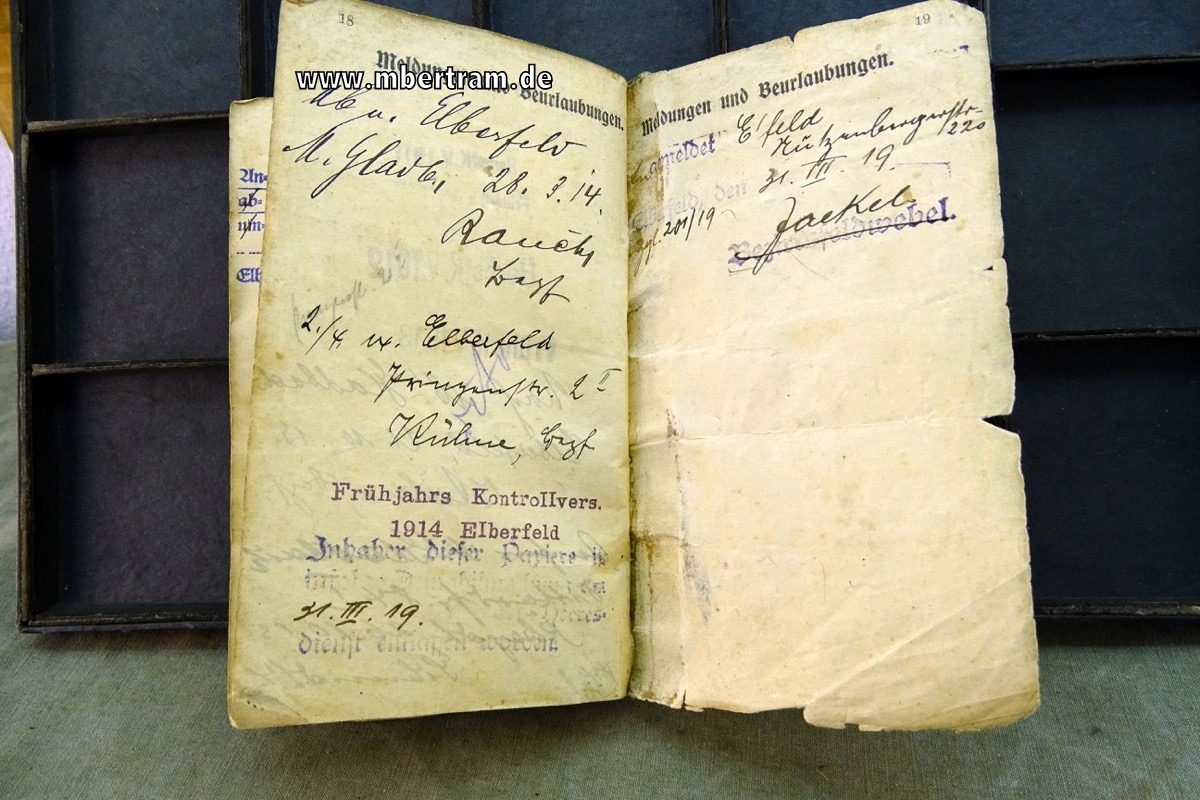 18
Meldungen und Beurlaubungen.
www.mbertram.de
Elberfeld
M. Gladb. 28. 3. 14.
Rauch,
Bezf
2./4. Elberfeld
Prinzenstr. 2 II
Kühne, Bezf
Frühjahrs Kontrollvers.
1914 Elberfeld
Inhaber dieser Papiere is
31. III. 19.
Heeres-
dienst entlassen worden.
An-
ab-
um-
Elb
19
Meldungen und Beurlaubungen.
angemeldet E'feld
Nützenbergerstr.
220
Elberfeld, den 31. III. 19.
201/19
Jaekel.
Bezirksfeldwebel.